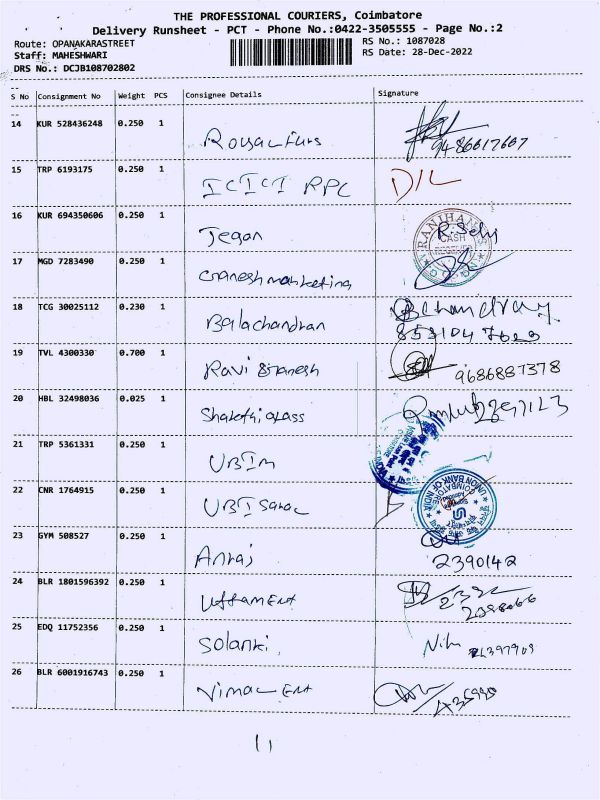 THE PROFESSIONAL COURIERS, Coimbatore
Delivery Runsheet - PCT - Phone No.:0422-3505555 - Page No.:2
Route: OPANAKARASTREET
RS No.: 1087028
Staff: MAHESHWARI
RS Date: 28-Dec-2022
DRS No.: DCJB108702802
S No Consignment No Weight PCS Consignee Details Signature
14 KUR 528436248 0.250 1
15 TRP 6193175 0.250 1 ICICI RPC D/L
16 KUR 694350606 0.250 1 Jegan
17 MGD 7283490 0.250 1 Ganesh marketing
18 TCG 30025112 0.230 1 Balachandran
19 TVL 4300330 0.700 1 Ravi Ganesh 9686887378
20 HBL 32498036 0.025 1
21 TRP 5361331 0.250 1 UBIM
22 CNR 1764915 0.250 1 UBI
UNION BANK OF INDIA
COIMBATORE
23 GYM 508527 0.250 1 2390142
24 BLR 1801596392 0.250 1 Uttam Ent
25 EDQ 11752356 0.250 1 Solanki
26 BLR 6001916743 0.250 1 Vimal Ent